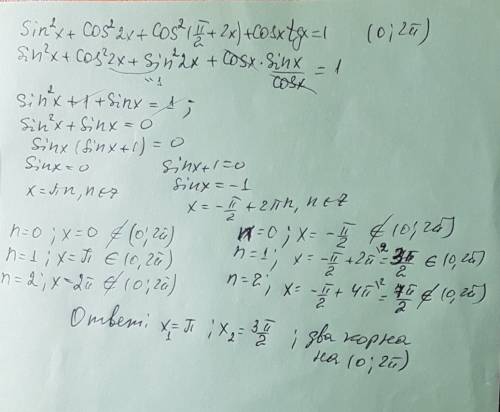 Sin²x + Cos²2x + Cos²(π/2 + 2x) + Cosx tgx = 1 (0; 2π)
Sin²x + Cos²2x + Sin²2x + Cosx · Sinx/Cosx = 1
"1
Sin²x + 1 + Sinx = 1 ;
Sin²x + Sinx = 0
Sinx (Sinx + 1) = 0
Sinx = 0 Sinx + 1 = 0
x = πn, n ∈ z Sinx = -1
x = -π/2 + 2πn, n ∈ z
n=0 ; x=0 ∉ (0; 2π) n=0 ; x = -π/2 ∉ (0; 2π)
n=1 ; x = π ∈ (0; 2π) n=1 ; x = -π/2 + 2π\2 = 3π/2 ∈ (0; 2π)
n=2 ; x - 2π ∉ (0; 2π) n=2 ; x = -π/2 + 4π\2 = 7π/2 ∉ (0; 2π)
Ответ: x₁ = π ; x₂ = 3π/2 ; два корна
на (0; 2π)